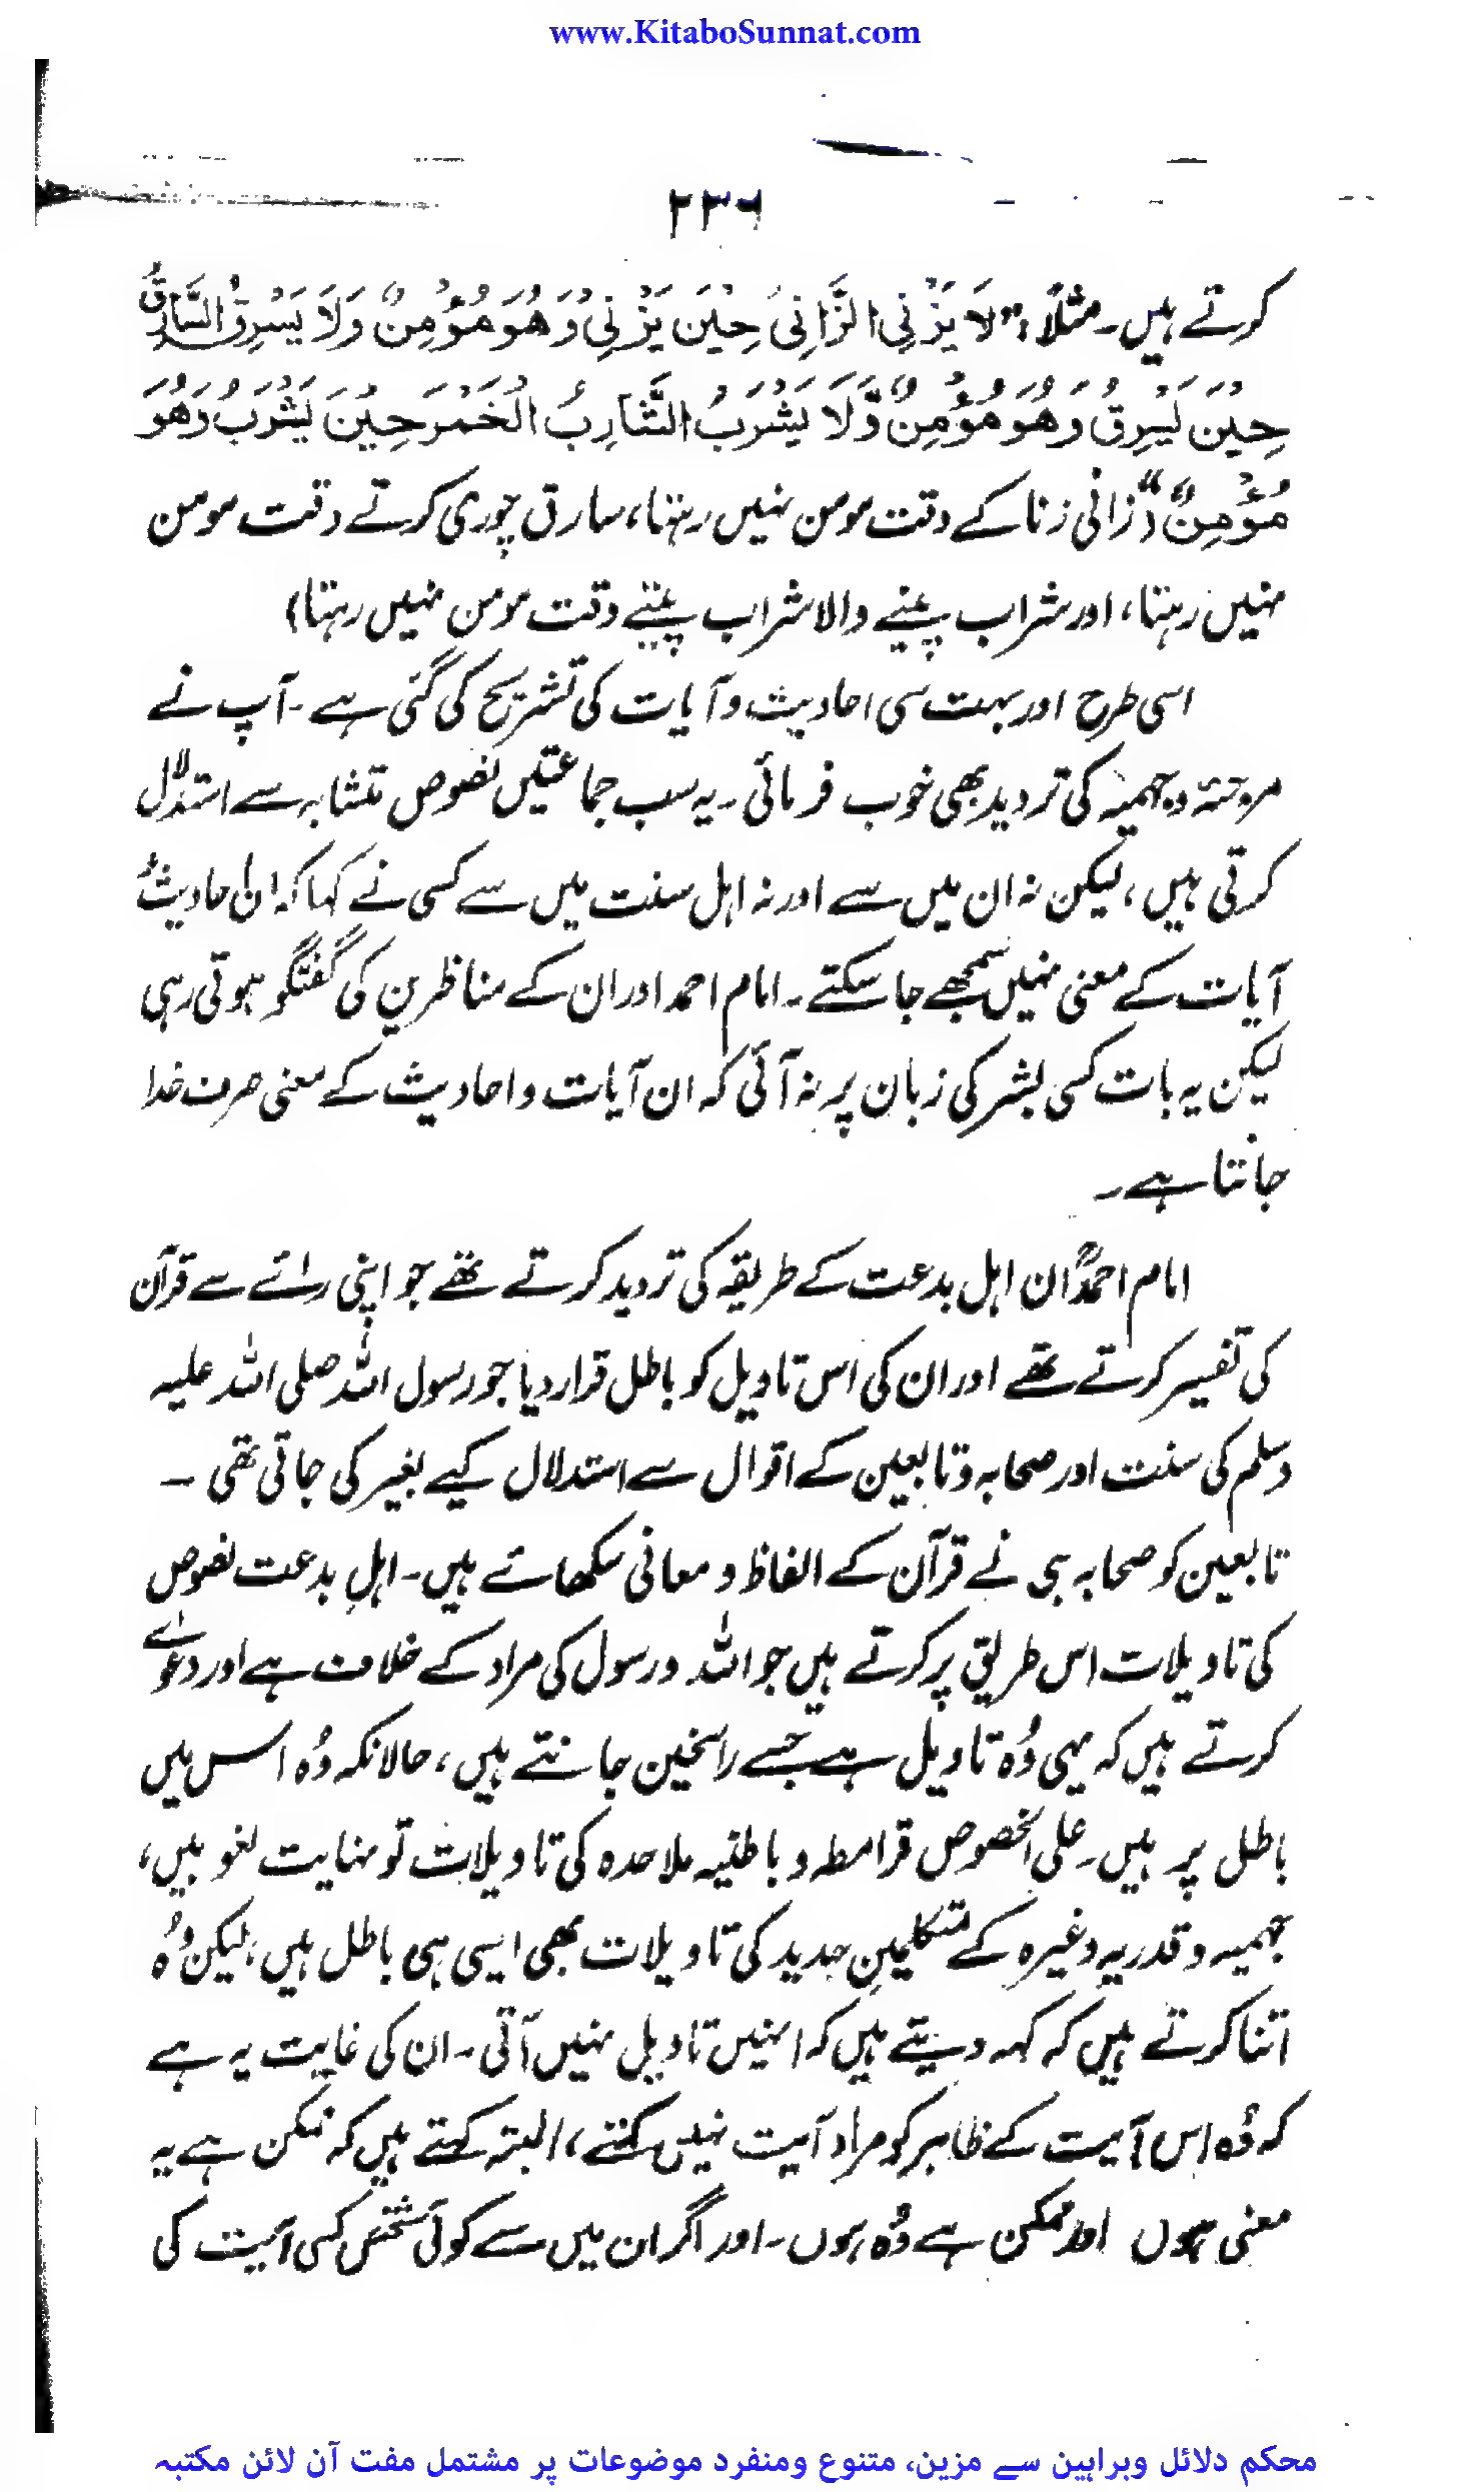 www.KitaboSunnat.com
۲۳۶
کرتے ہیں۔ مثلاً: "لَا يَزْنِی الزَّانِیْ حِيْنَ يَزْنِیْ وَهُوَ مُؤْمِنٌ وَلَا يَسْرِقُ السَّارِقُ
حِيْنَ يَسْرِقُ وَهُوَ مُؤْمِنٌ وَّلَا يَشْرَبُ الشَّارِبُ الْخَمْرَ حِيْنَ يَشْرَبُ وَهُوَ
مُؤْمِنٌ" (زانی زنا کے وقت مومن نہیں رہتا، سارق چوری کرتے وقت مومن
نہیں رہتا، اور شراب پینے والا شراب پیتے وقت مومن نہیں رہتا)
اسی طرح اور بہت سی احادیث و آیات کی تشریح کی گئی ہے۔ آپ نے
مرجئہ و جہمیہ کی تردید بھی خوب فرمائی۔ یہ سب جماعتیں نصوص متشابہ سے استدلال
کرتی ہیں، لیکن نہ ان میں سے اور نہ اہل سنت میں سے کسی نے کہا کہ ان احادیث و
آیات کے معنی نہیں سمجھے جا سکتے۔ امام احمد اور ان کے مناظرین کی گفتگو ہوتی رہی
لیکن یہ بات کسی بشر کی زبان پر نہ آئی کہ ان آیات و احادیث کے معنی صرف خدا
جانتا ہے۔
امام احمدؒ ان اہل بدعت کے طریقہ کی تردید کرتے تھے جو اپنی رائے سے قرآن
کی تفسیر کرتے تھے اور ان کی اس تاویل کو باطل قرار دیا جو رسول اللہ صلی اللہ علیہ
وسلم کی سنت اور صحابہ و تابعین کے اقوال سے استدلال کیے بغیر کی جاتی تھی۔
تابعین کو صحابہ ہی نے قرآن کے الفاظ و معانی سکھائے ہیں۔ اہلِ بدعت نصوص
کی تاویلات اس طریق پر کرتے ہیں جو اللہ و رسول کی مراد کے خلاف ہے اور دعوےٰ
کرتے ہیں کہ یہی وُہ تاویل ہے جسے راسخین جانتے ہیں، حالانکہ وُہ اس میں
باطل پر ہیں۔ علی الخصوص قرامطہ و باطنیہ ملاحدہ کی تاویلات تو نہایت لغو ہیں،
جہمیہ و قدریہ وغیرہ کے متکلمینِ جدید کی تاویلات بھی ایسی ہی باطل ہیں، لیکن وُہ
اتنا کرتے ہیں کہ کہہ دیتے ہیں کہ انہیں تاویل نہیں آتی۔ ان کی غایت یہ ہے
کہ وُہ اس آیت کے ظاہر کو مراد آیت نہیں کہتے، البتہ کہتے ہیں کہ ممکن ہے یہ
معنی ہوں اور ممکن ہے وُہ ہوں۔ اور اگر ان میں سے کوئی شخص کسی آیت کی
محکم دلائل وبراہین سے مزین، متنوع ومنفرد موضوعات پر مشتمل مفت آن لائن مکتبہ